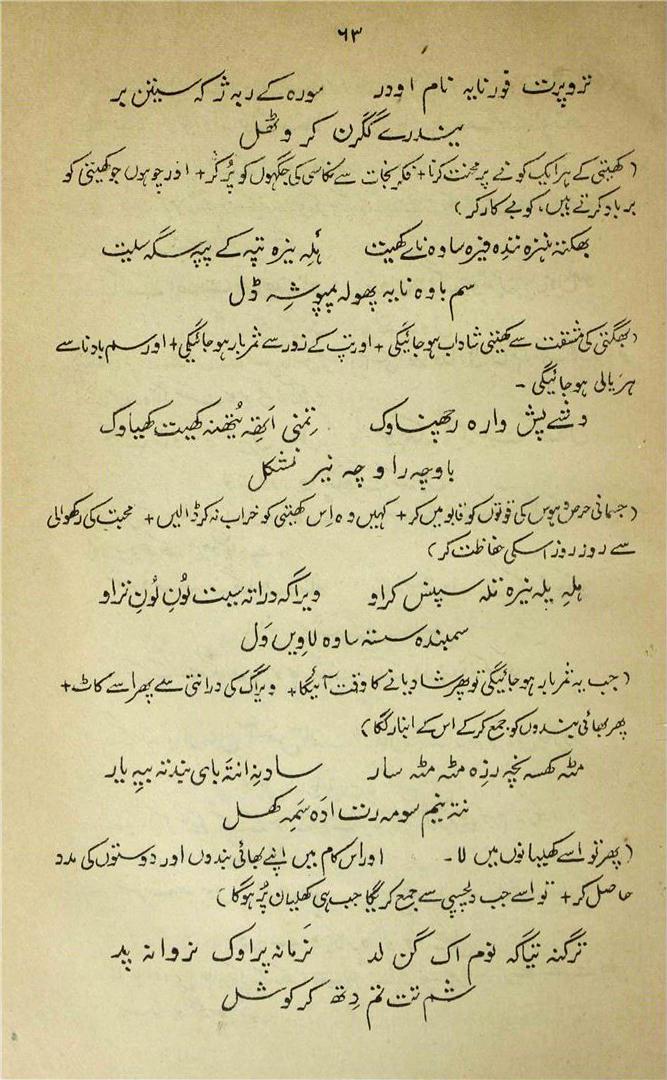 ۶۳
تروپرت فورنایہ نام اودر سورہ کے ربہ ژر کہ سیتن بر
یندرے گگرن کر وٹھل
( کھیتی کے ہر ایک کونے پر محنت کرنا + فکر نجات سے نکاسی کی جگہوں کو پُر کر + اور چوہوں جو کھیتی کو
برباد کرتے ہیں، کو بے کار کر )
بھکتہ شہزہ نندہ فیرہ ساوہ ناے کھیت ہلہ ینرہ تپہ کے پیپہ سگہ سیت
سم باوہ نایہ پھولہ پمپوشہ ڈل
( بھگتی کی مشقت سے کھیتی شاداب ہو جائیگی + اور تپ کے زور سے ثمربار ہو جائیگی + اور سم بادنا سے
ہریالی ہو جائیگی -
وشے پش وارہ رچھناوک تمنی اتھہ یتھنہ کھیت کھیاوک
باوچہ راوچہ نیر نشکل
( جسمانی حرص و ہوس کی قوتوں کو قابو میں کر + کہیں وہ اس کھیتی کو خراب نہ کر ڈالیں + محبت کی رکھوالی
سے روز روز اسکی حفاظت کر )
ہلہ یلہ نیرہ تلہ سپنس کراو ویراگہ دراتہ سیت لون لون تراو
سمبندہ ستہ ساوہ لاوین ول
( جب یہ ثمربار ہو جائیگی تو پھر شادیانے کا وقت آئیگا + ویراگ کی درانتی سے پھر اسے کاٹ +
پھر بھائی بندوں کو جمع کر کے اس کے انبار لگا )
مٹہ کھسہ نچہ رزہ مٹہ مٹہ سار سادنہ انتہ بای بندتہ بییہ یار
نتہ نیم سومہ رت ادہ سمہ کھل
( پھر تو اسے کھلیانوں میں لا - اور اس کام میں اپنے بھائی بندوں اور دوستوں کی مدد
حاصل کر + تو اسے جب دلچسپی سے جمع کریگا جب ہی کھلیان پُر ہوگا )
ترگنہ تیاگہ توم اک گن لد نرمانہ پراوک نروانہ پد
شم تت تم دتھ کر کوشل